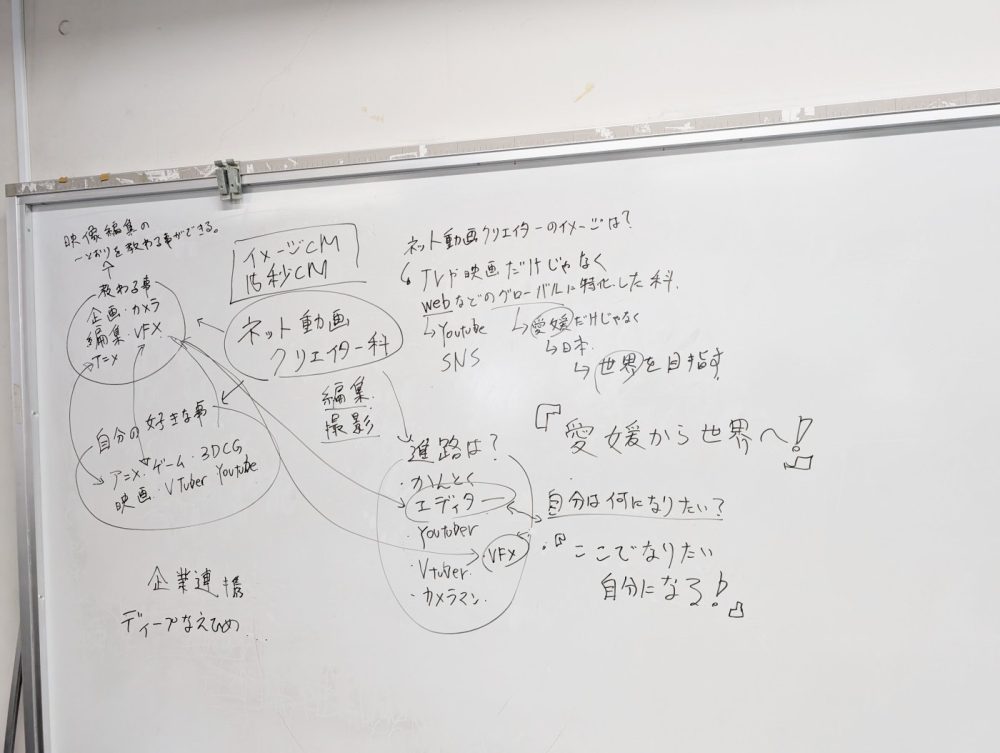 映像編集の
一とおりを教わる事ができる。
教わる事
企画・カメラ
編集・VFX
アニメ
自分の好きな事
アニメ・ゲーム・3DCG
映画・VTuber Youtube
企業連携
ディープなえひめ...
イメージCM
15秒CM
ネット動画
クリエイター科
編集
撮影
進路は？
・かんとく
エディター
・Youtuber
・VFX
・Vtuber
・カメラマン
ネット動画クリエイターのイメージは？
テレビや映画だけじゃなく
webなどのグローバルに特化した科
Youtube
SNS
愛媛だけじゃなく
日本
世界を目指す
『愛媛から世界へ！』
自分は何になりたい？
・『ここでなりたい
自分になる！』